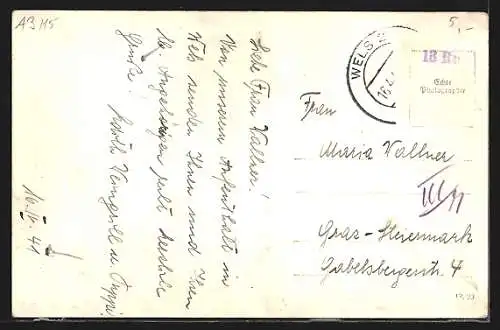 AB 115
5,-
WELS
18 Rp
Echte
Photographie
Liebe Frau Vallner!
Von unserem Aufenthalt in
Wels senden Ihnen und Ihren
lb. Angehörigen recht herzliche
Grüße!
u. Pippi
16.IV.41
Frau
Maria Vallner
III/11
Graz-Steiermark
Gabelsbergerstr. 4